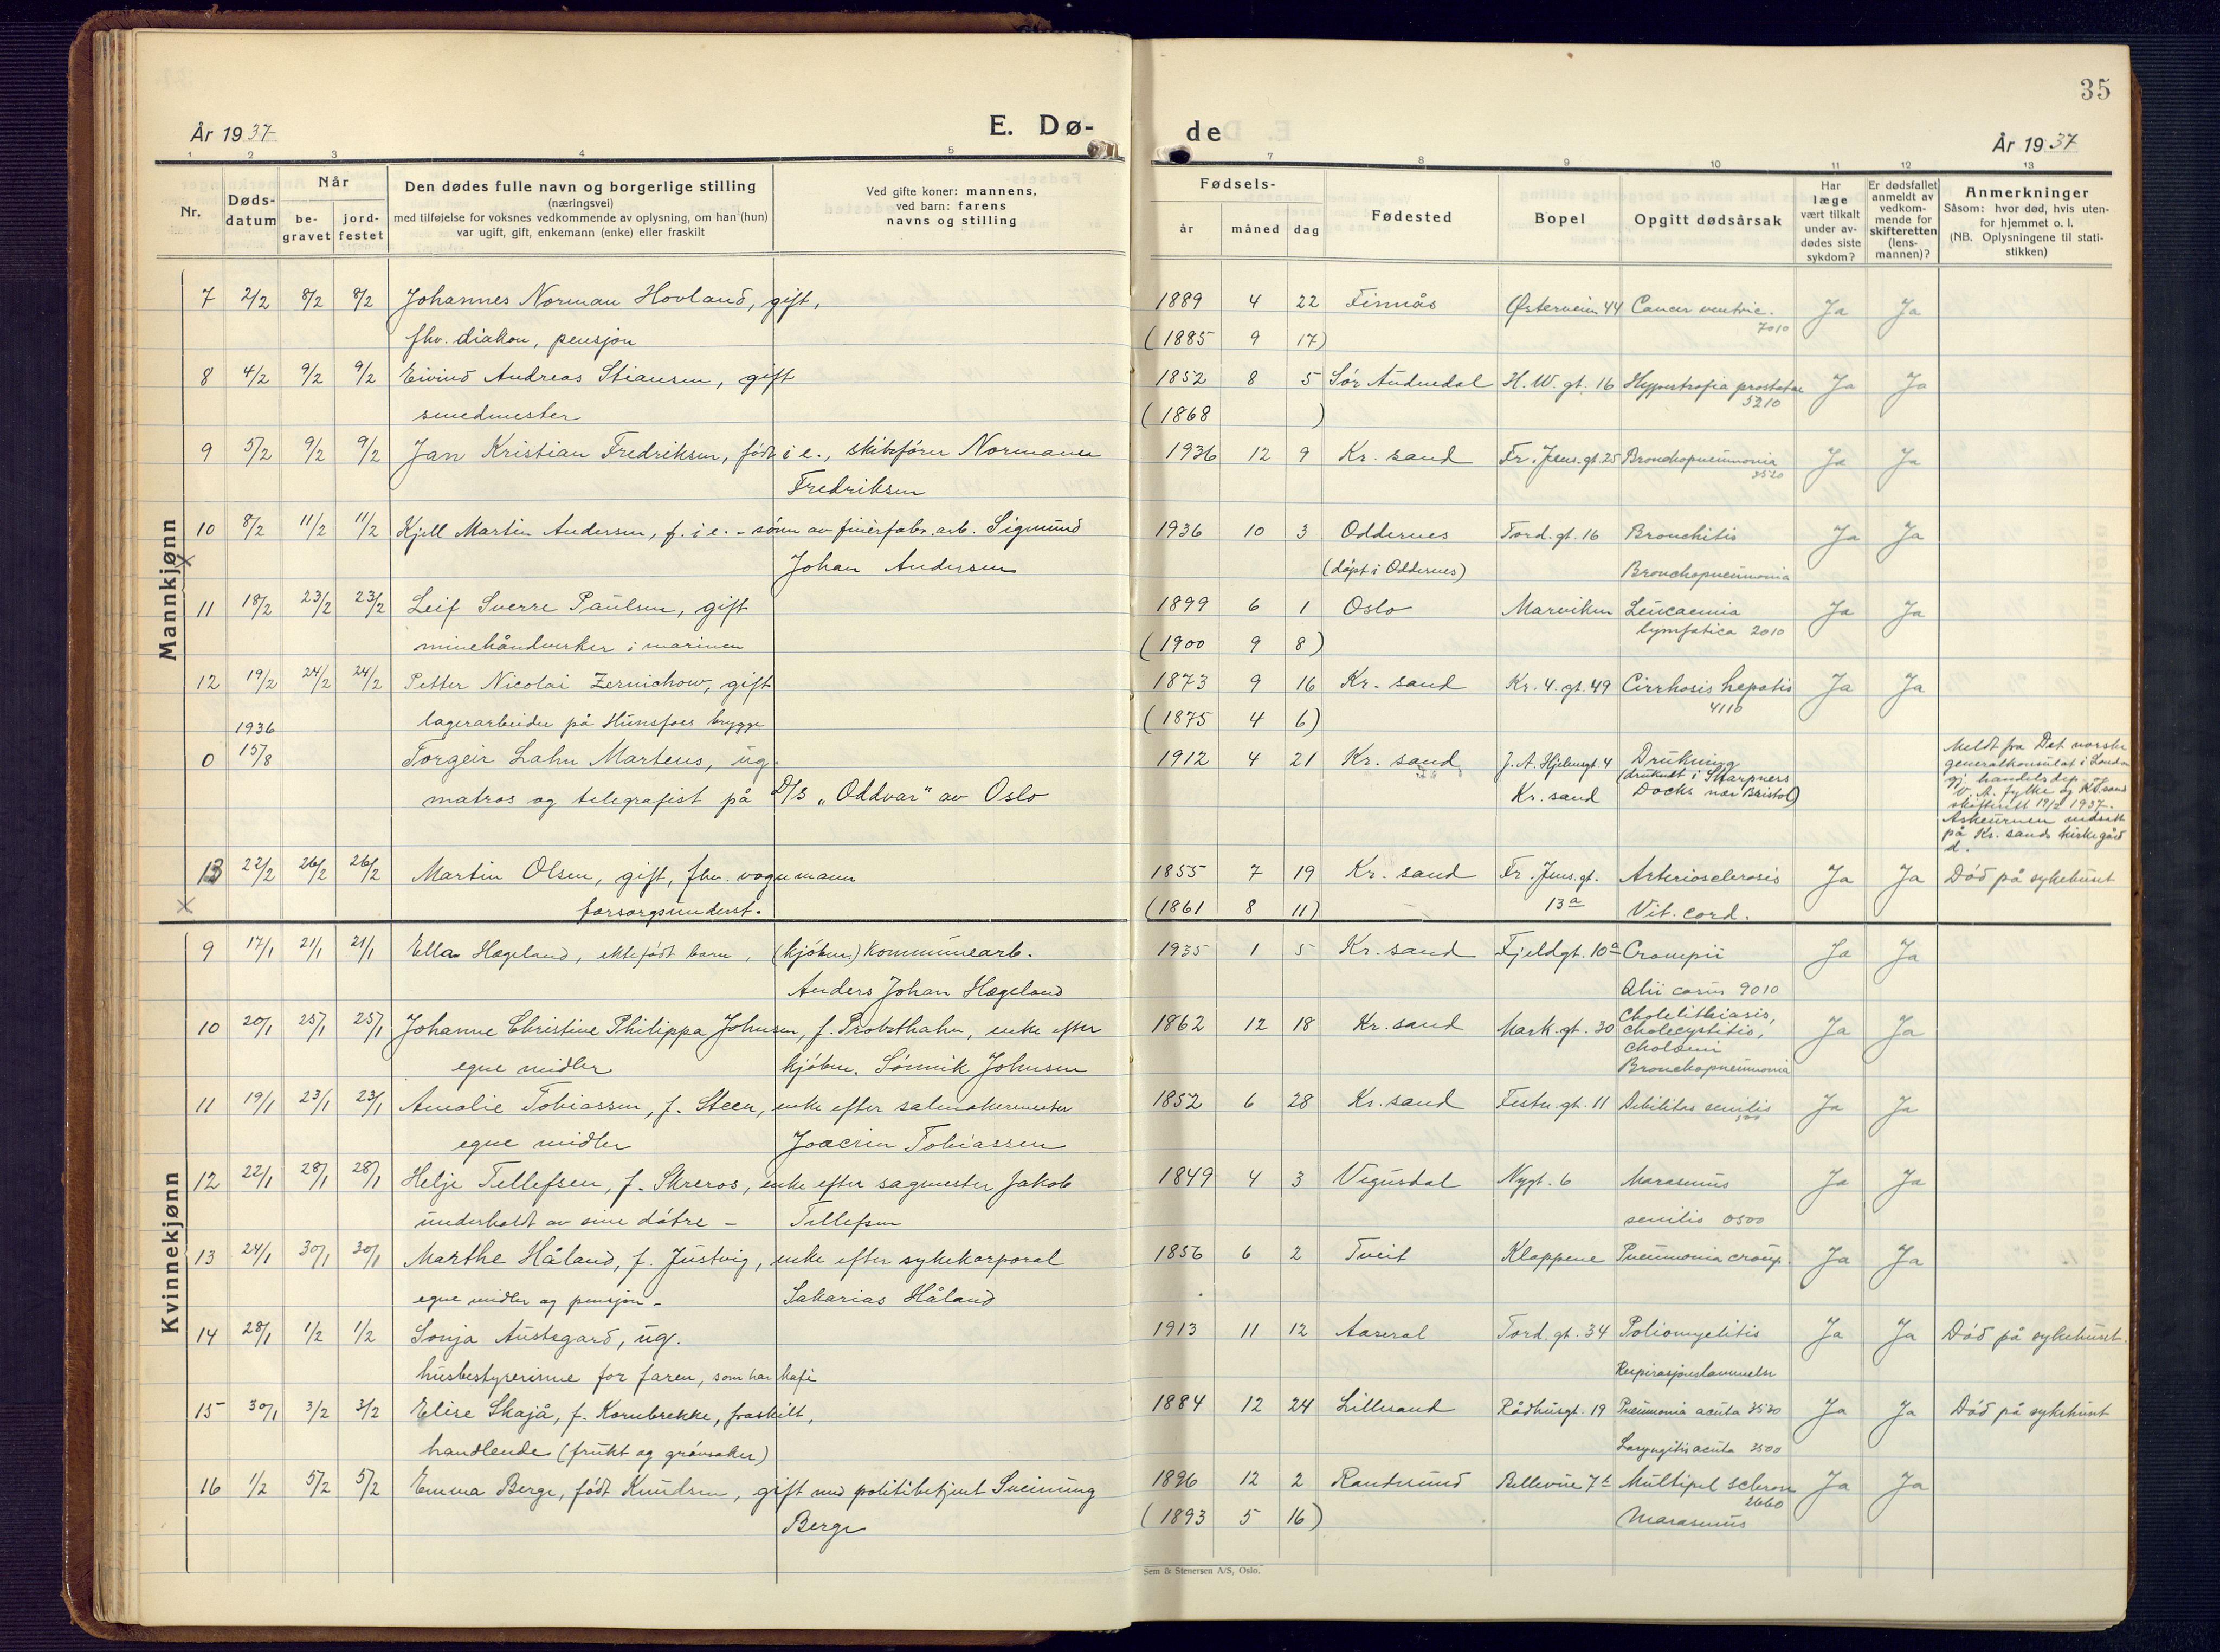 35
År 1937
E. Dø-
de
År 1937
1 2 3 4 5
7 8 9 10 11 12 13
Nr.
Døds-
datum
Når
be-
gravet
jord-
festet
Den dødes fulle navn og borgerlige stilling
(næringsvei)
med tilføielse for voksnes vedkommende av oplysning, om han (hun)
var ugift, gift, enkemann (enke) eller fraskilt
Ved gifte koner: mannens,
ved barn: farens
navns og stilling
Fødsels-
år måned dag
Fødested
Bopel
Opgitt dødsårsak
Har
læge
vært tilkalt
under av-
dødes siste
sykdom?
Er dødsfallet
anmeldt av
vedkom-
mende for
skifteretten
(lens-
mannen)?
Anmerkninger
Såsom: hvor død, hvis uten-
for hjemmet o. l.
(NB. Oplysningene til stati-
stikken)
Mannkjønn
7 2/2 8/2 8/2 Johannes Norman Hovland, gift, 1889 4 22 Finnås Østerveien 44 Cancer ventric. Ja Ja
7010
fhv. diakon, pensjon (1885 9 17)
8 4/2 9/2 9/2 Eivind Andreas Stiansen, gift 1852 8 5 Sør Audnedal H. W. gt. 16 Hypertrofia prostatae Ja Ja
5210
smedmester (1868 )
9 5/2 9/2 9/2 Jan Kristian Fredriksen, født i e., skibsfører Normann 1936 12 9 Kr. sand Fr. Jens. gt. 25 Bronchopneumonia Ja Ja
3520
Fredriksen
10 8/2 11/2 11/2 Kjell Martin Andersen, f. i e. - sønn av finérfabr. arb. Sigmund 1936 10 3 Oddernes Tord. gt. 16 Bronchitis Ja Ja
Johan Andersen (døpt i Oddernes) Bronchopneumonia
11 18/2 23/2 23/2 Leif Sverre Paulsen, gift 1899 6 1 Oslo Marviken Leucaemia Ja Ja
minehåndverker i marinen (1900 9 8) lymfatica 2010
12 19/2 24/2 24/2 Petter Nicolai Zernichow, gift 1873 9 16 Kr. sand Kr. 4. gt. 49 Cirrhosis hepatis Ja Ja
4110
lagerarbeider på Hunsfoss brygge (1875 4 6)
1936
0 15/8 Torgeir Lahn Martens, ug. 1912 4 21 Kr. sand J. A. Hjelmsgt. 4 Drukning
matros og telegrafist på D/S "Oddvar" av Oslo Kr. sand (druknet i Sharpners
Docks nær Bristol)
Meldt fra Det norske
generalkonsulat i London
gj. handelsdep. og
V. A. fylke og Kr.sand
skifterett 19/2 1937.
Askeurnen nedsatt
på Kr. sands kirkegård
d.
13 22/2 26/2 26/2 Martin Olsen, gift, fhv. vognmann 1855 7 19 Kr. sand Fr. Jens. gt. Arteriosclerosis Ja Ja Død på sykehuset
forsorgsunderst. (1861 8 11) 13a Vit. cord.
Kvinnekjønn
9 17/1 21/1 21/1 Ella Hægeland, ektefødt barn, (kjøbm.) Kommunearb. 1935 1 5 Kr. sand Fjeldgt. 10a Ja Ja
Anders Johan Hægeland 9010
10 20/1 25/1 25/1 Johanne Christine Philippa Johnsen, f. Probsthahn, enke efter 1862 12 18 Kr. sand Mark. gt. 30 Cholelithiasis, Ja Ja
cholecystitis,
egne midler kjøbm. Sønnik Johnsen
Bronchopneumonia
11 19/1 23/1 23/1 Amalie Tobiassen, f. Steen, enke efter salmakermester 1852 6 28 Kr. sand Festn. gt. 11 Debilitas senilis Ja Ja
egne midler Joacim Tobiassen
12 22/1 28/1 28/1 Helje Tellefsen, f. Skreros, enke efter sagmester Jakob 1849 4 3 Vegusdal Nygt. 6 Marasmus Ja Ja
underholdt av sine døtre - Tellefsen senilis 0500
13 24/1 30/1 30/1 Marthe Håland, f. Justvig, enke efter sykekorporal 1856 6 2 Tveit Kloppene Pneumonia croup. Ja Ja
egne midler og pensjon - Sakarias Håland
14 28/1 1/2 1/2 Sonja Austegard, ug. 1913 11 12 Aaseral Tord. gt. 34 Poliomyelitis Ja Ja Død på sykehuset.
husbestyrerinne for faren, som har kafé Respirasjonslammelse
15 30/1 3/2 3/2 Elise Skajå, f. Kornbrekke, fraskilt, 1884 12 24 Lillesand Rådhusgt. 19 Pneumonia acuta 3530 Ja Ja Død på sykehuset
handlende (frukt og grønsaker) Laryngitis acuta 3500
16 1/2 5/2 5/2 Emma Berge, født Knudsen, gift med politibetjent Sveinung 1896 12 2 Randesund Bellevue 7b Multipel sclerose Ja Ja
2660
Berge (1893 5 16) Marasmus
Sem & Stenersen A/S, Oslo.